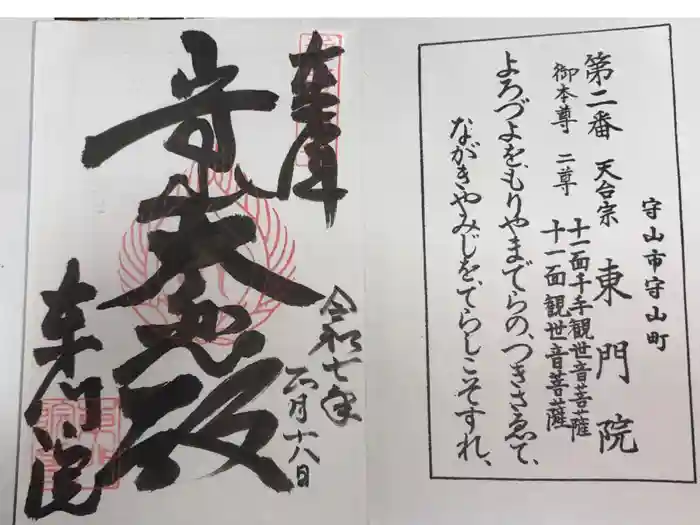 守山市守山町
第二番 天台宗 東門院
御本尊 二尊 十一面千手観世音菩薩
十一面観世音菩薩
よろづよをもりやまでらの、つきさゑて、
ながきやみじを、てらしこそすれ、
奉拝
令和七年
六月十八日
大悲殿
東門院